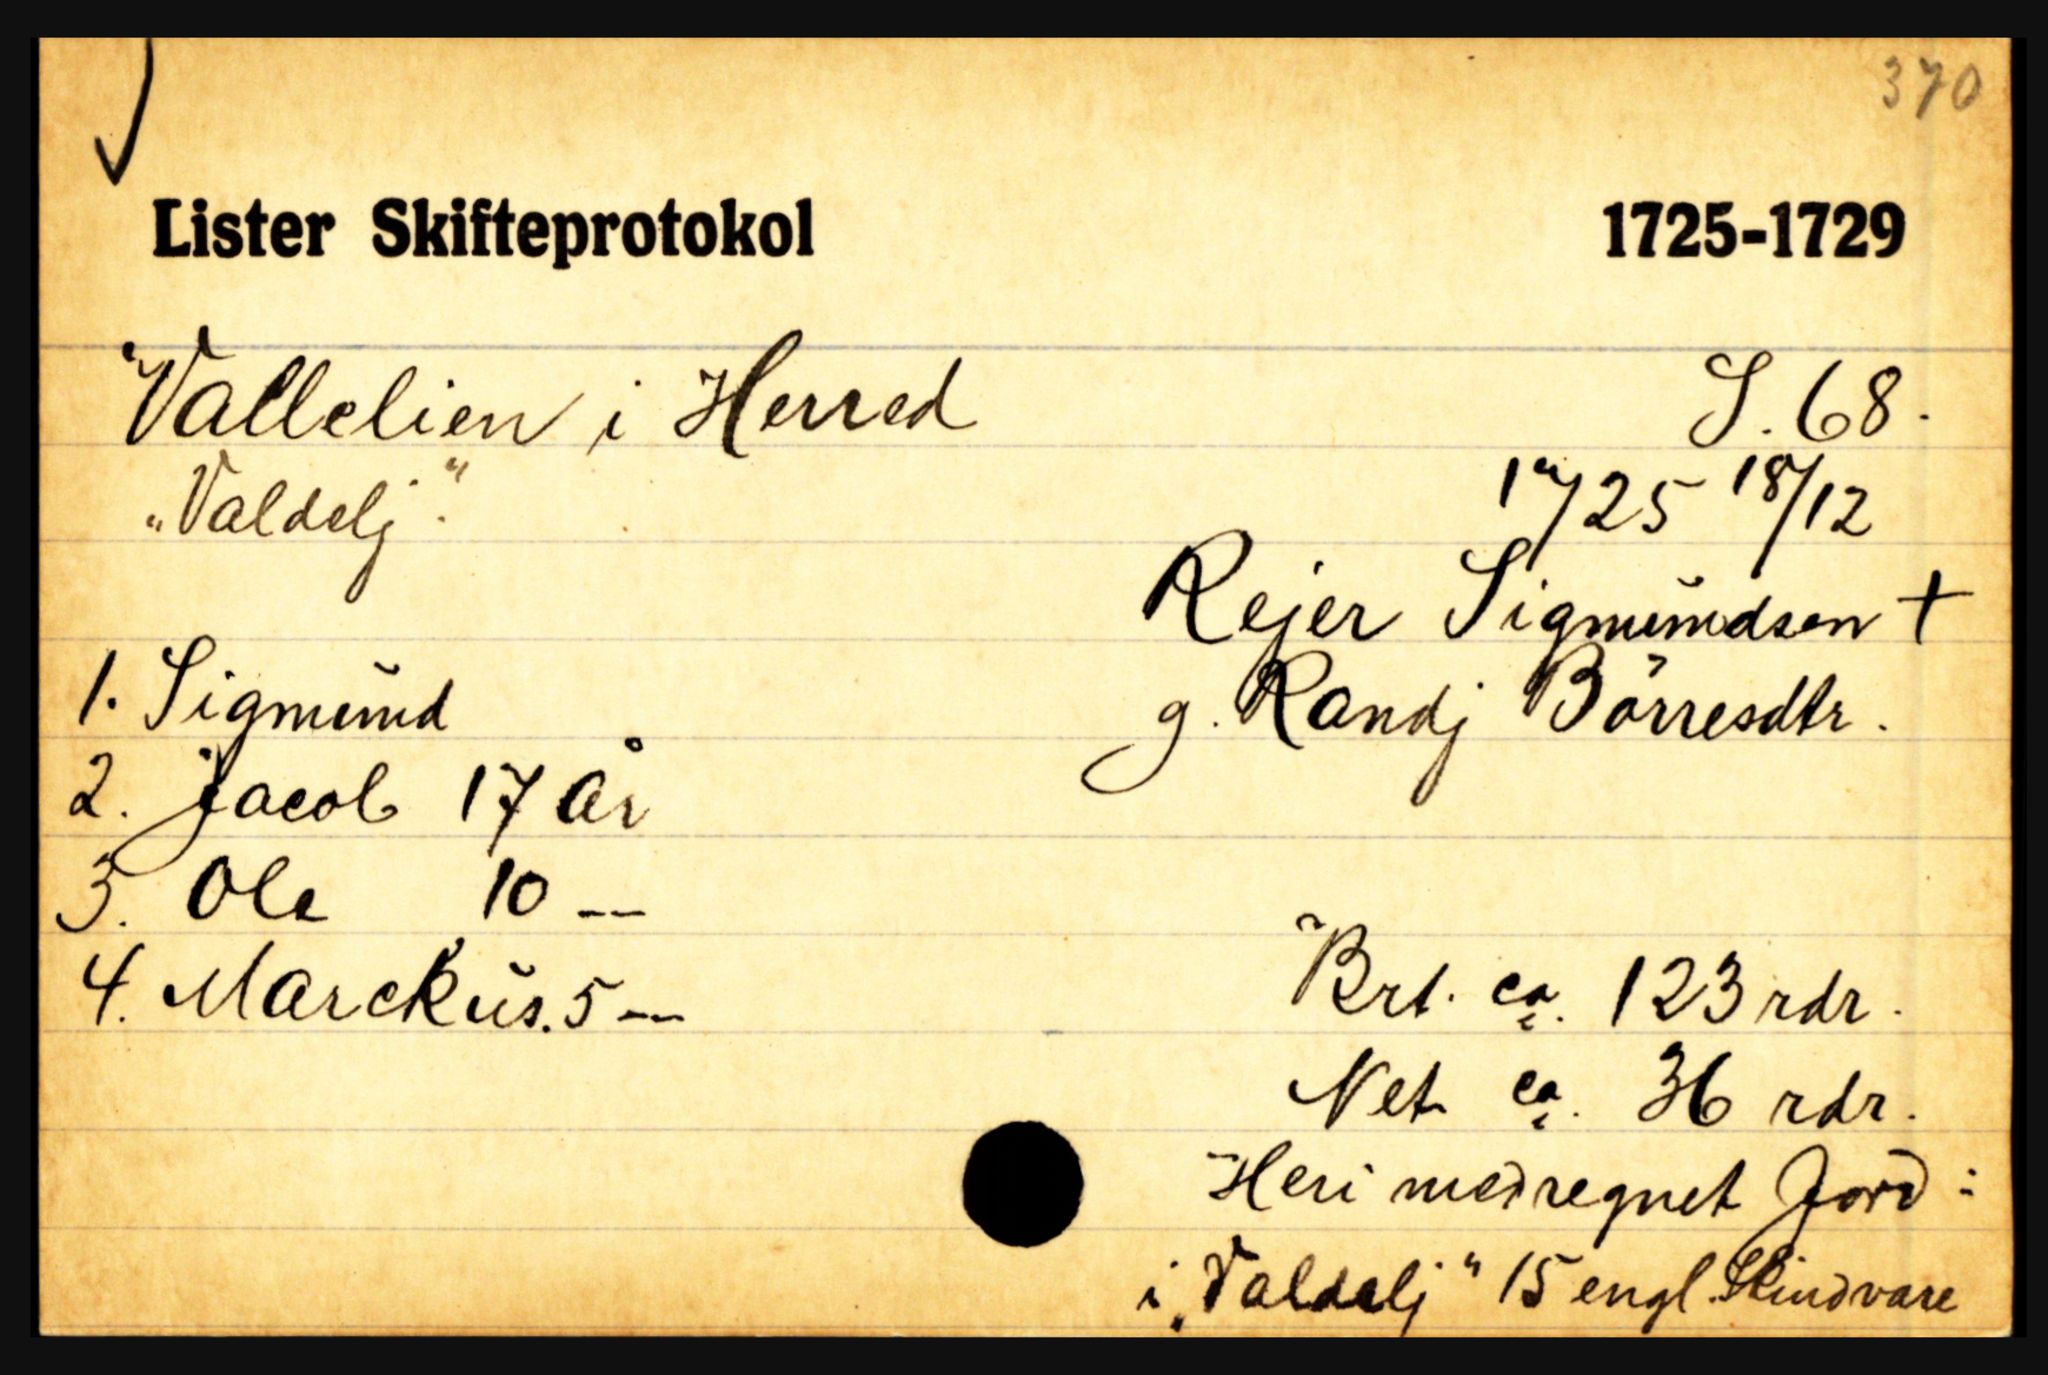 370
Lister Skifteprotokol 1725-1729
Vallelien i Herred S. 68.
„Valdelj“. 17/25 18/12
Rejer Sigmundsen +
1. Sigmund g. Randj Börresdtr.
2. Jacob 17 År
3. Ole 10 —
4. Marckus. 5 — Brt. ca. 123 rdr.
Net ca. 36 rdr.
Heri medregnet Jord:
i „Valdelj“ 15 engl. Skindvare